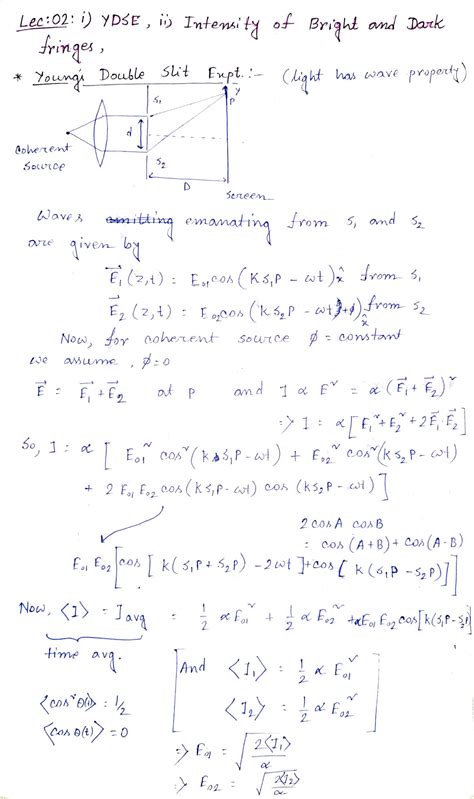 Lec:02: i) YDSE, ii) Intensity of Bright and Dark
fringes,
* Young's Double Slit Expt.:- (light has wave property)
S₁
y
P
d
Coherent
source
S₂
D
Screen
Waves emitting emanating from S₁ and S₂
are given by
E⃗₁(z,t) = E₀₁cos(KS₁P - ωt)x̂ from S₁
E⃗₂(z,t) = E₀₂cos(KS₂P - ωt+φ)x̂ from S₂
Now, for coherent source φ = constant
we assume, φ=0
E⃗ = E⃗₁+E⃗₂ at P and I α E² = α(E⃗₁+E⃗₂)²
=> I = α[E₁²+E₂²+2E⃗₁.E⃗₂]
So, I = α [E₀₁² cos²(KS₁P-ωt) + E₀₂² cos²(KS₂P-ωt)
+ 2 E₀₁ E₀₂ cos(KS₁P-ωt) cos(KS₂P-ωt)]
2cosA cosB
= cos(A+B)+cos(A-B)
E₀₁ E₀₂[cos[K(S₁P+S₂P)-2ωt]+cos[K(S₁P-S₂P)]]
Now, <I> = Iavg = ½ αE₀₁² + ½ αE₀₂² +αE₀₁E₀₂cos[K(S₁P-S₂P)]
time avg.
<cos²θ(t)> = 1/2
<cosθ(t)> = 0
[And <I₁> = ½ α E₀₁²
<I₂> = ½ α E₀₂²]
=> E₀₁ = √(2<I₁>/α)
=> E₀₂ = √(2<I₂>/α)